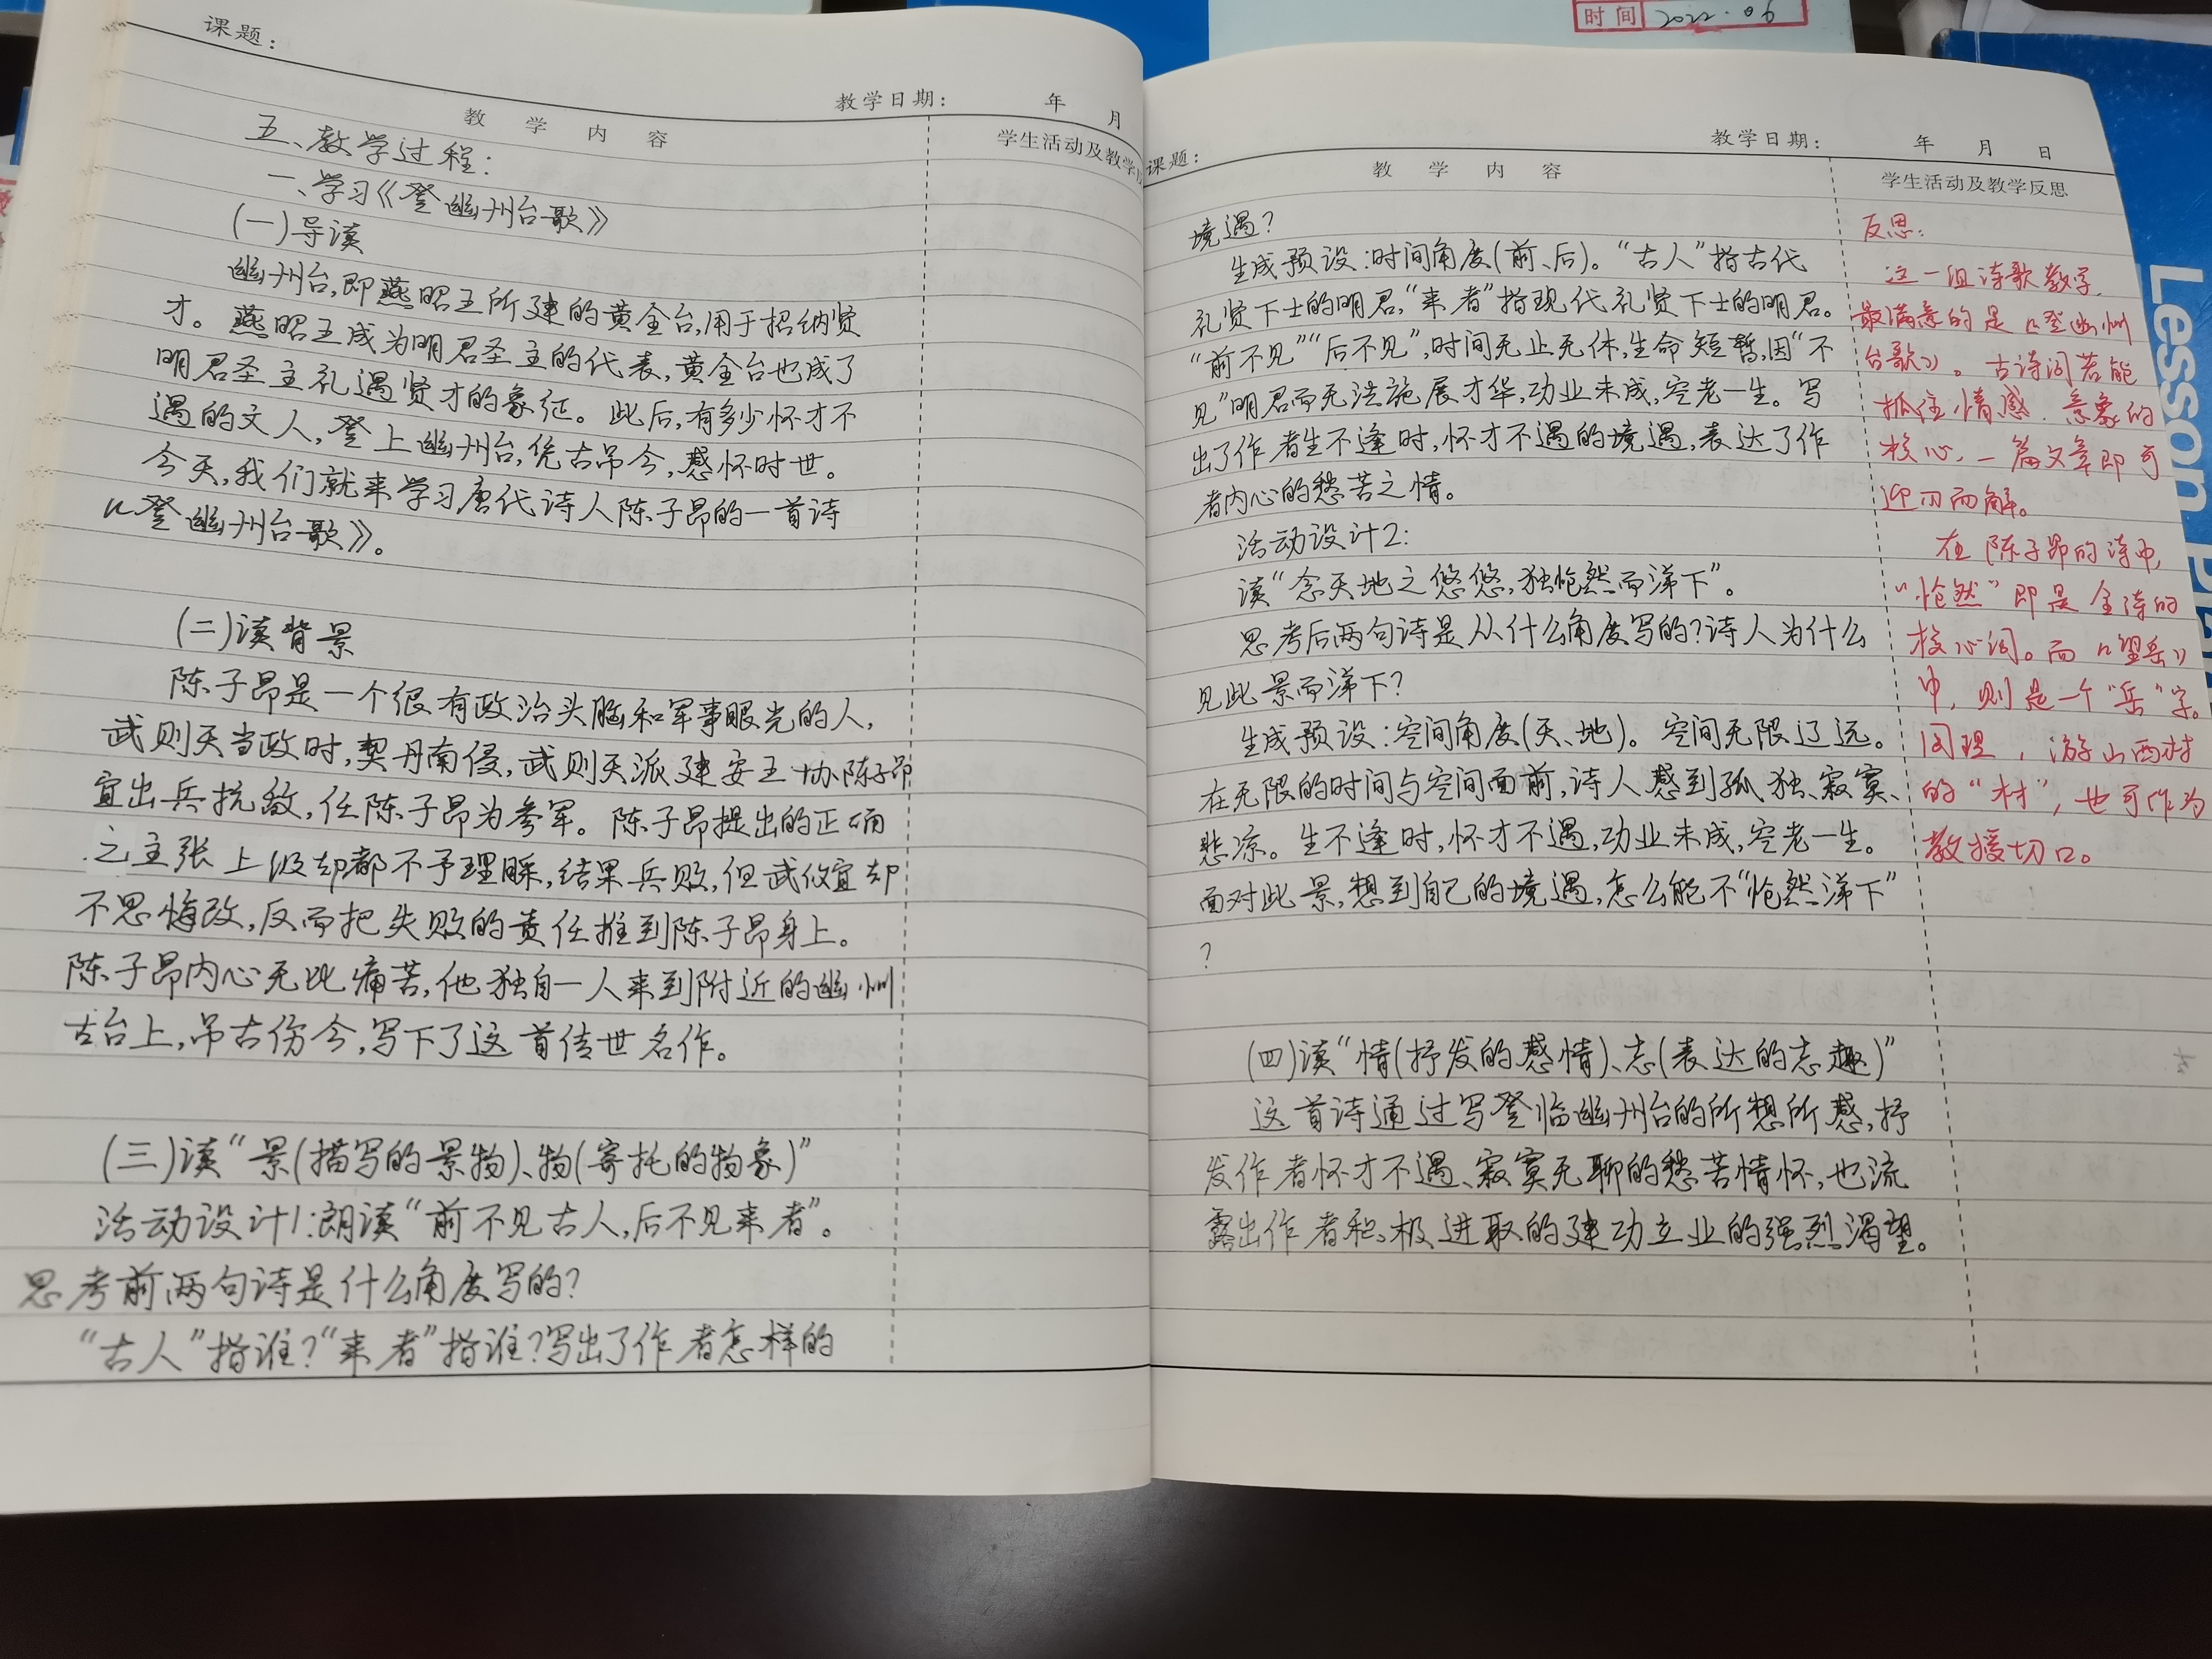 课题：
教学日期： 年 月
教 学 内 容
学生活动及教学
五、教学过程：
一、学习《登幽州台歌》
(一)导读
幽州台,即燕昭王所建的黄金台,用于招纳贤
才。燕昭王成为明君圣主的代表,黄金台也成了
明君圣主礼遇贤才的象征。此后,有多少怀才不
遇的文人,登上幽州台,凭古吊今,感怀时世。
今天,我们就来学习唐代诗人陈子昂的一首诗
《登幽州台歌》。
(二)读背景
陈子昂是一个很有政治头脑和军事眼光的人,
武则天当政时,契丹南侵,武则天派建安王协陈子昂
宜出兵抗敌,任陈子昂为参军。陈子昂提出的正确
之主张上级却都不予理睬,结果兵败,但武攸宜却
不思悔改,反而把失败的责任推到陈子昂身上。
陈子昂内心无比痛苦,他独自一人来到附近的幽州
古台上,吊古伤今,写下了这首传世名作。
(三)读“景(描写的景物)、物(寄托的物象)”
活动设计1:朗读“前不见古人,后不见来者”。
思考前两句诗是什么角度写的?
“古人”指谁?“来者”指谁?写出了作者怎样的
时间 2022.06
课题：
教学日期： 年 月 日
教 学 内 容
学生活动及教学反思
境遇?
生成预设:时间角度(前、后)。“古人”指古代
礼贤下士的明君,“来者”指现代礼贤下士的明君。
“前不见”“后不见”,时间无止无休,生命短暂,因“不
见”明君而无法施展才华,功业未成,空老一生。写
出了作者生不逢时,怀才不遇的境遇,表达了作
者内心的愁苦之情。
活动设计2:
读“念天地之悠悠,独怆然而涕下”。
思考后两句诗是从什么角度写的?诗人为什么
见此景而涕下?
生成预设:空间角度(天、地)。空间无限辽远。
在无限的时间与空间面前,诗人感到孤独、寂寞、
悲凉。生不逢时,怀才不遇,功业未成,空老一生。
面对此景,想到自己的境遇,怎么能不“怆然涕下”
?
(四)读“情(抒发的感情)、志(表达的志趣)”
这首诗通过写登临幽州台的所想所感,抒
发作者怀才不遇、寂寞无聊的愁苦情怀,也流
露出作者积极进取的建功立业的强烈渴望。
反思:
这一组诗歌教学,
最满意的是《登幽州
台歌》。古诗词若能
抓住情感、意象的
核心,一篇文章即可
迎刃而解。
在陈子昂的诗中,
“怆然”即是全诗的
核心词。而《望岳》
中,则是一个“岳”字。
同理,游山西村
的“村”,也可作为
教授切口。
Lesson Plan